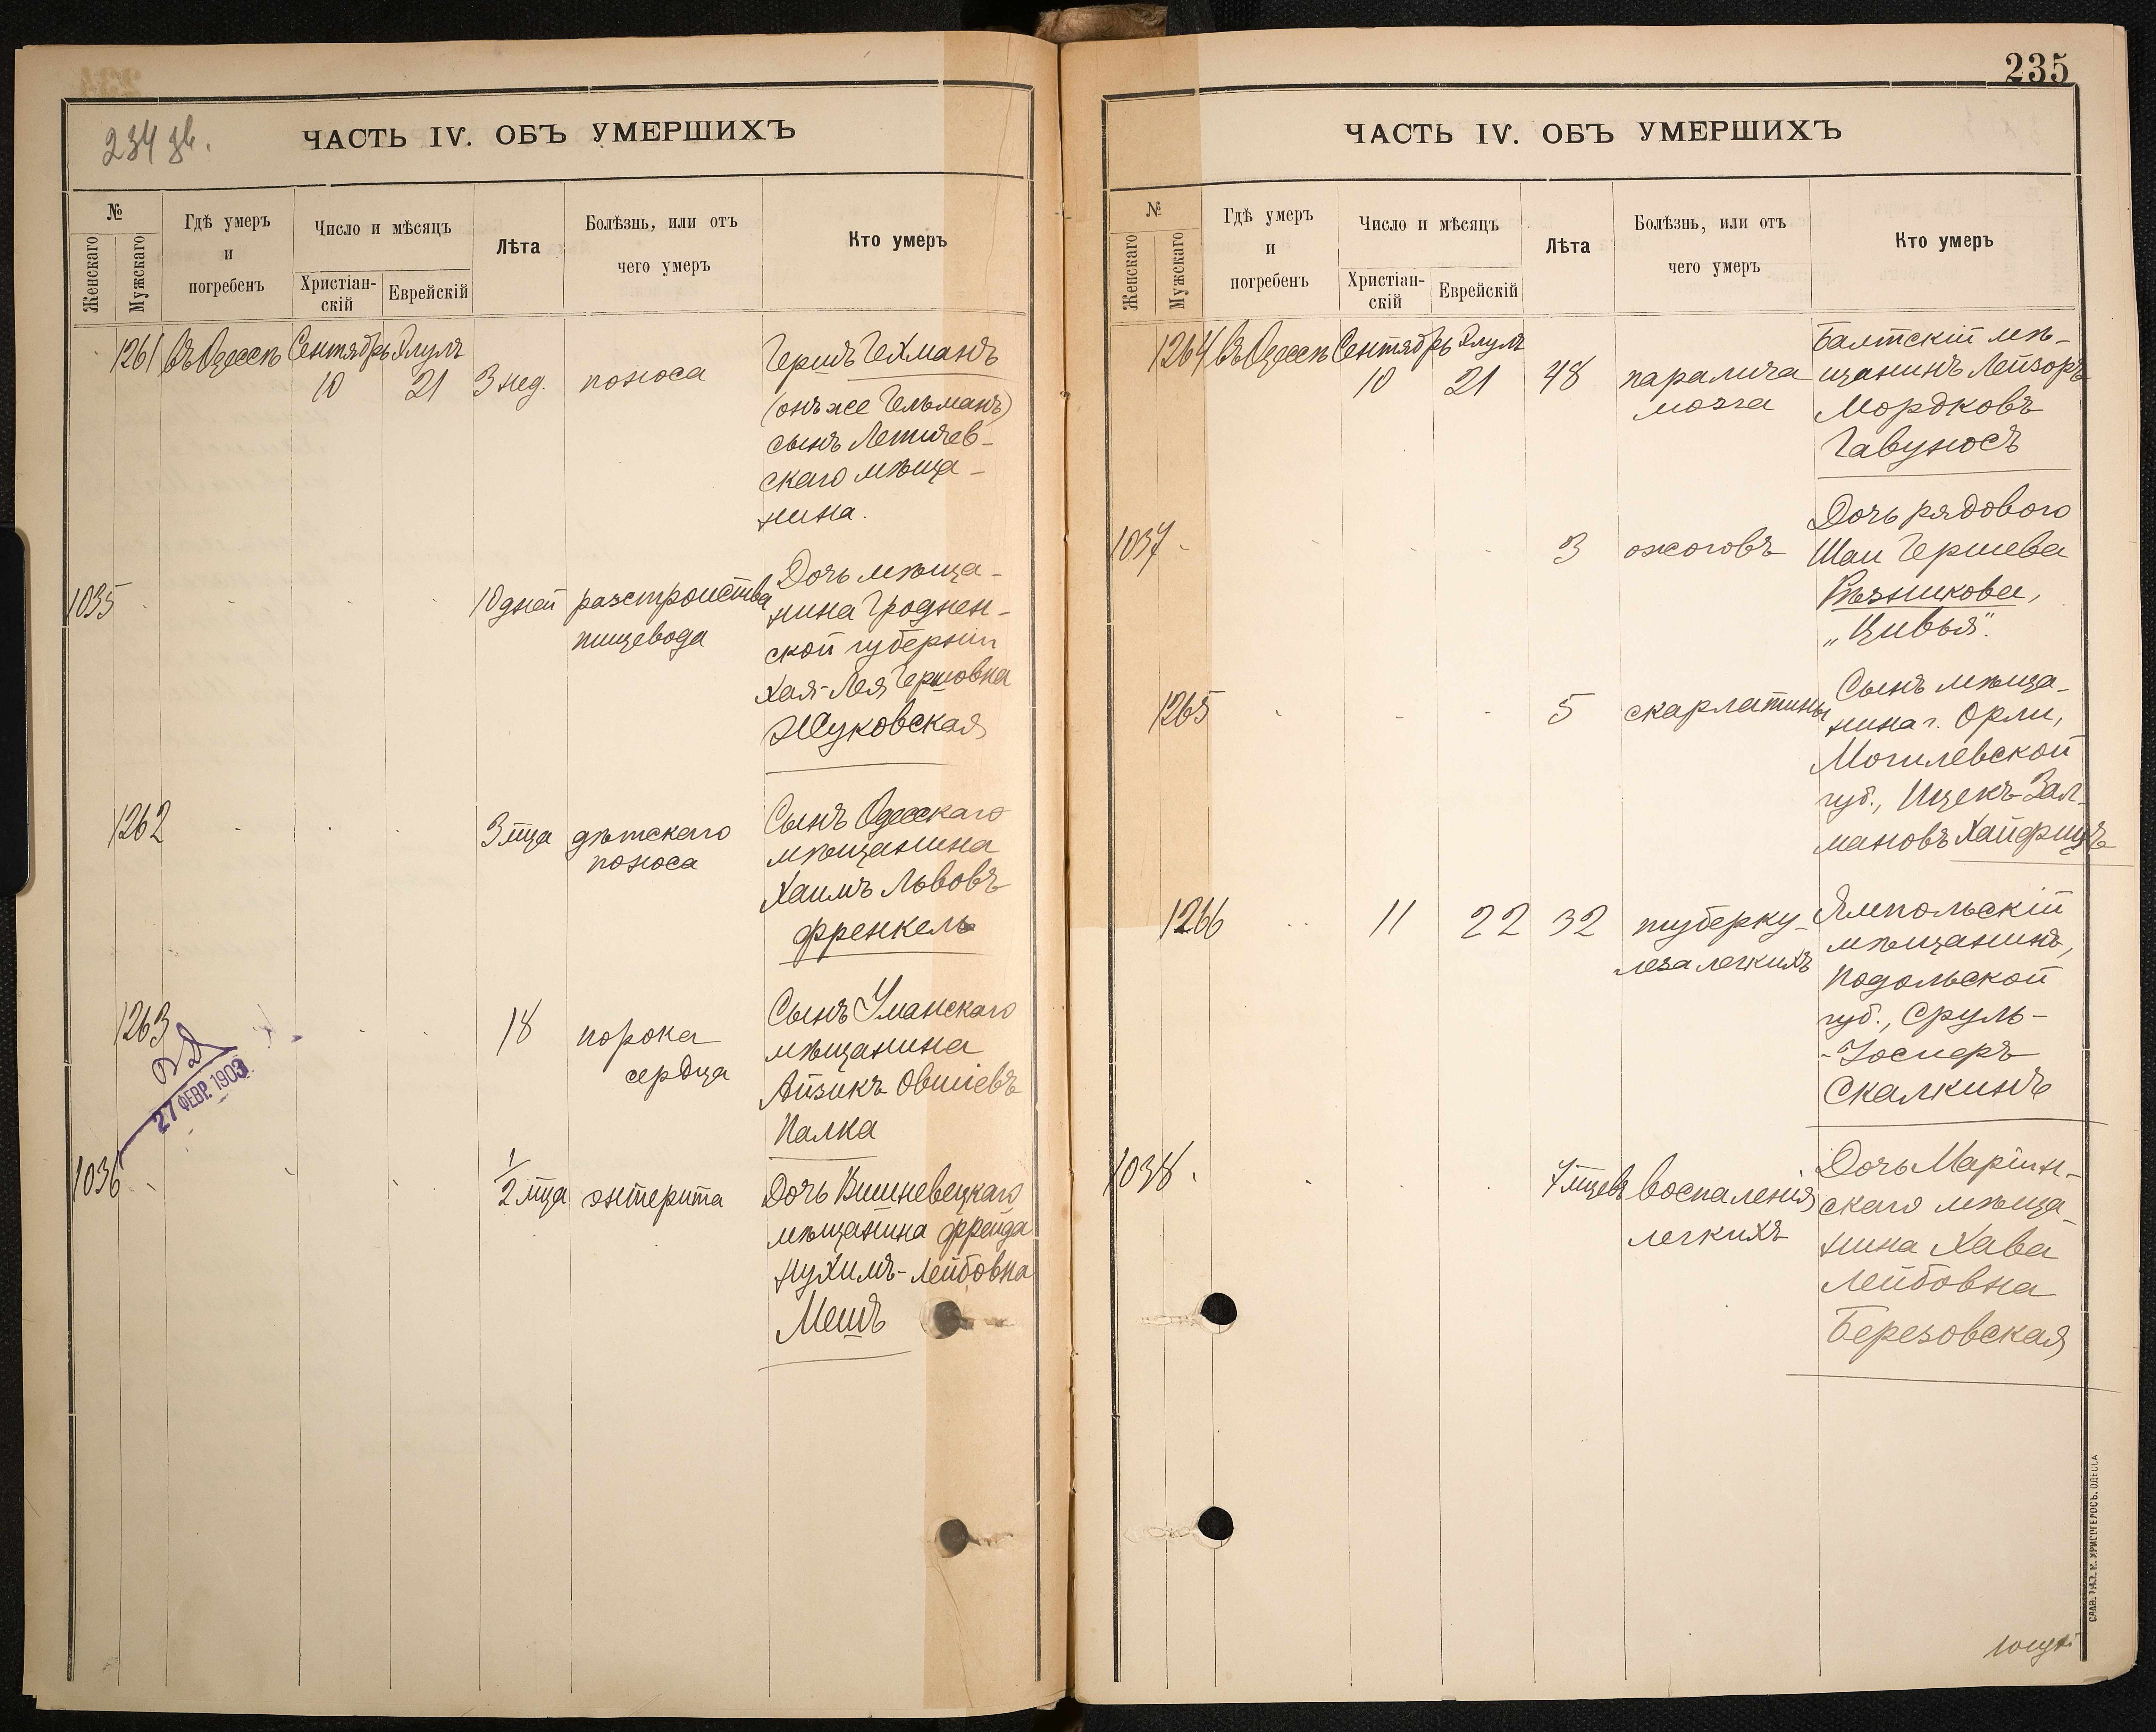 234 зв.
ЧАСТЬ IV. ОБЪ УМЕРШИХЪ
№
Женскаго
Мужскаго
Гдѣ умеръ
и
погребенъ
Число и мѣсяцъ
Христіан-
скій
Еврейскій
Лѣта
Болѣзнь, или отъ
чего умеръ
Кто умеръ
1261 Въ Одессѣ Сентябрь Элулъ
10 21 3 нед. поноса
Гершъ Гехманъ
(онъ же Гельманъ)
сынъ Летичев-
скаго мѣща-
нина.
1035 10 дней разстройства
пищевода
Дочь мѣща-
нина Гроднен-
ской губерніи
Хая-Лея Гершовна
Жуковская
1262 3 мца дѣтскаго
поноса
Сынъ Одесскаго
мѣщанина
Хаимъ Львовъ
Френкель
1263 18 порока
сердца
Сынъ Уманскаго
мѣщанина
Айзикъ Овшіевъ
Палка
27 ФЕВР. 1903
1036 1/2 мца энтерита
Дочь Вишневецкаго
мѣщанина Фрейда
Нухимъ-Лейбовна
Мешъ
235
ЧАСТЬ IV. ОБЪ УМЕРШИХЪ
№
Женскаго
Мужскаго
Гдѣ умеръ
и
погребенъ
Число и мѣсяцъ
Христіан-
скій
Еврейскій
Лѣта
Болѣзнь, или отъ
чего умеръ
Кто умеръ
1264 Въ Одессѣ Сентябрь Элулъ
10 21 48 паралича
мозга
Балтскій мѣ-
щанинъ Лейзоръ
Мордковъ
Гавуносъ
1037 3 ожоговъ
Дочь рядового
Шаи Гершева
Рѣзникова,
„Цивья".
1265 5 скарлатины
Сынъ мѣща-
нина г. Орли,
Могилевской
губ., Ицекъ Зал-
мановъ Хайфицъ
1266 11 22 32 туберку-
леза легкихъ
Ямпольскій
мѣщанинъ,
Подольской
губ., Сруль-
-Іосперъ
Скалкинъ
1038 7 мцевъ воспаленія
легкихъ
Дочь Маріин-
скаго мѣща-
нина Хава
Лейбовна
Березовская